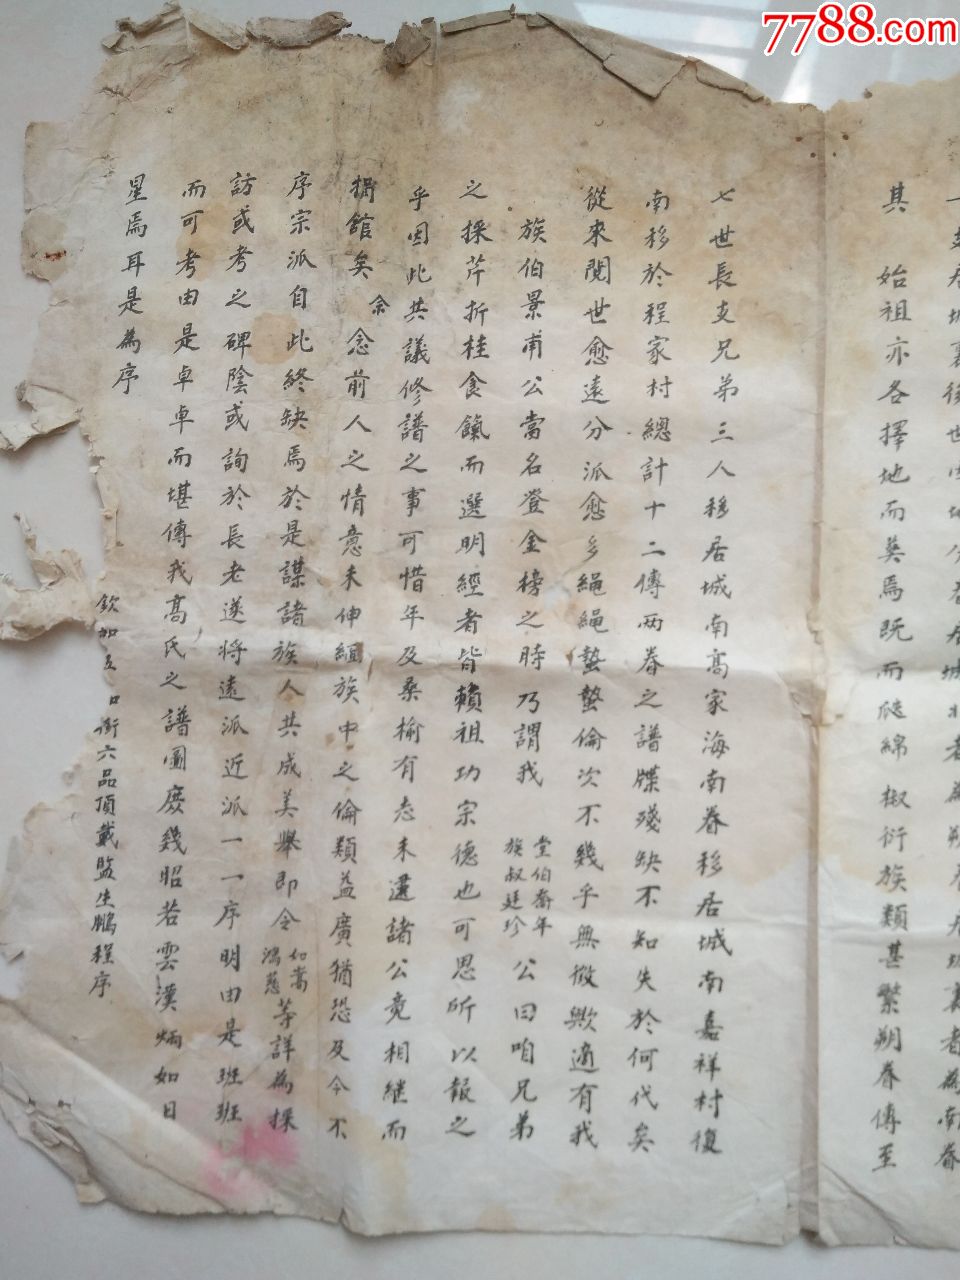 7788.com
居城裏後世
其 始祖亦各擇地而葬焉既而瓞綿椒衍族類甚繁朔眷傳至
七世長支兄弟三人移居城南高家海南眷移居城南嘉祥村復
南移於程家村總計十二傳兩眷之譜牒殘缺不知失於何代矣
從來閱世愈遠分派愈多繩繩蟄蟄倫次不幾乎無徵歟適有我
族伯景甫公當名登金榜之時乃謂我 堂伯喬年 族叔廷珍 公曰咱兄弟
之採芹折桂食餼而選明經者皆賴祖功宗德也可思所以報之
乎因此共議修譜之事可惜年及桑榆有志未逮諸公竟相繼而
捐館矣 余念前人之情意未伸緬族中之倫類益廣猶恐及今不
序宗派自此終缺焉於是謀諸族人共成美舉即令 如嵩 鴻慈 等詳為採
訪或考之碑陰或詢於長老遂將遠派近派一一序明由是班班
而可考由是卓卓而堪傳我高氏之譜圖庶幾昭若雲漢炳如日
星焉耳是為序
欽加 銜六品頂戴監生鵬程序